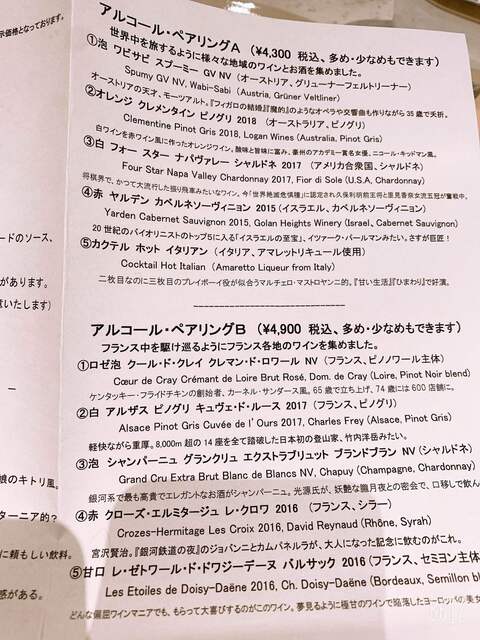 示価格となっております。
アルコール・ペアリングA (¥4,300 税込、多め・少なめもできます)
世界中を旅するように様々な地域のワインとお酒を集めました。
①泡 ワビサビ スプーミー GV NV (オーストリア、グリューナーフェルトリーナー)
Spumy GV NV, Wabi-Sabi (Austria, Grüner Veltliner)
オーストリアの天才、モーツアルト。『フィガロの結婚』『魔的』のようなオペラや交響曲も作りながら35歳で夭折。
②オレンジ クレメンタイン ピノグリ 2018 (オーストラリア、ピノグリ)
Clementine Pinot Gris 2018, Logan Wines (Australia, Pinot Gris)
白ワインを赤ワイン風に作ったオレンジワイン。酸味と旨味に富み、豪州のアカデミー賞名女優、ニコール・キッドマン風。
③白 フォー スター ナパヴァレー シャルドネ 2017 (アメリカ合衆国、シャルドネ)
Four Star Napa Valley Chardonnay 2017, Fior di Sole (U.S.A, Chardonnay)
将棋界で、かつて大流行した振り飛車みたいなワイン。今「世界絶滅危惧種」に認定され久保利明前王将と里見香奈女流五冠が奮戦中。
④赤 ヤルデン カベルネソーヴィニョン 2015 (イスラエル、カベルネソーヴィニョン)
Yarden Cabernet Sauvignon 2015, Golan Heights Winery (Israel、Cabernet Sauvignon)
20世紀のバイオリニストのトップ5に入る「イスラエルの至宝」、イツァーク・パールマンみたい。さすが巨匠！
⑤カクテル ホット イタリアン (イタリア、アマレットリキュール使用)
Cocktail Hot Italian (Amaretto Liqueur from Italy)
二枚目なのに三枚目のプレイボーイ役が似合うマルチェロ・マストロヤンニ的。『甘い生活』『ひまわり』で好演。
------------------------------
アルコール・ペアリングB (¥4,900 税込、多め・少なめもできます)
フランス中を駆け巡るようにフランス各地のワインを集めました。
①ロゼ泡 クール・ド・クレイ クレマン・ド・ロワール NV (フランス、ピノノワール主体)
Cœur de Cray Crémant de Loire Brut Rosé, Dom. de Cray (Loire, Pinot Noir blend)
ケンタッキー・フライドチキンの創始者、カーネル・サンダース風。65歳で立ち上げ、74歳には600店舗に。
②白 アルザス ピノグリ キュヴェ・ド・ルース 2017 (フランス、ピノグリ)
Alsace Pinot Gris Cuvée de l'Ours 2017, Charles Frey (Alsace, Pinot Gris)
軽快ながら重厚。8,000m超の14座を全て踏破した日本初の登山家、竹内洋岳みたい。
③泡 シャンパーニュ グランクリュ エクストラブリュット ブランドブラン NV (シャルドネ)
Grand Cru Extra Brut Blanc de Blancs NV, Chapuy (Champagne, Chardonnay)
銀河系で最も高貴でエレガントなお酒がシャンパーニュ。光源氏が、妖艶な朧月夜との密会で、口移しで飲ん
④赤 クローズ・エルミタージュ レ・クロワ 2016 (フランス、シラー)
Crozes-Hermitage Les Croix 2016, David Reynaud (Rhône, Syrah)
宮沢賢治。『銀河鉄道の夜』のジョバンニとカムパネルラが、大人になった記念に飲むのがこれ。
⑤甘口 レ・ゼトワール・ド・ドワジーデーヌ バルサック 2016 (フランス、セミヨン主体
Les Etoiles de Doisy-Daëne 2016, Ch. Doisy-Daëne (Bordeaux, Semillon bl
どんな偏屈ワインマニアでも、もらって大喜びするのがこのワイン。夢見るように極甘のワインで陥落したヨーロッパの美女
ードのソース、
があります。
意いたします)
娘のキトリ風。
ターニア的？
に頼もしい飲料。
感がある。